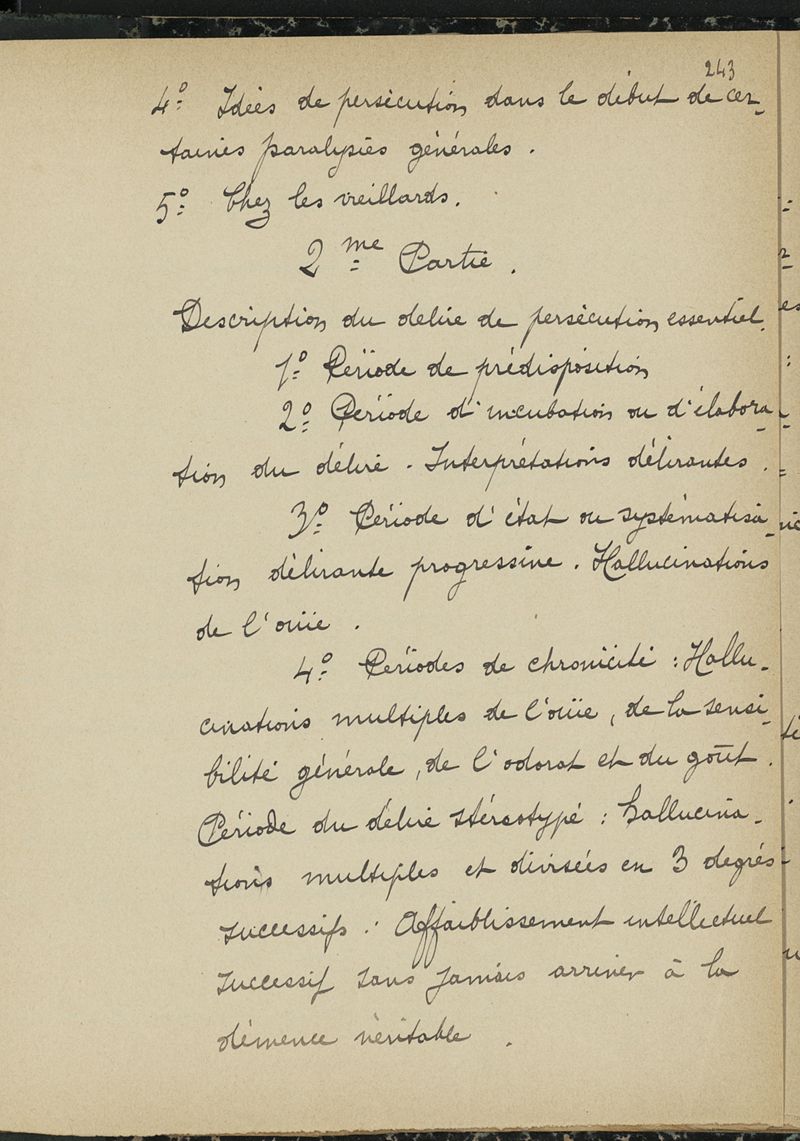 243
4º Idées de persécution dans le début de cer-
taines paralysies générales.
5º Chez les vieillards.
2me Partie.
Description du délire de persécution essentiel.
1º Période de prédisposition
2º Période d'incubation ou d'élabora-
tion du délire. Interprétations délirantes.
3º Période d'état ou systématisa-
tion délirante progressive. Hallucinations
de l'ouïe.
4º Périodes de chronicité : Hallu-
cinations multiples de l'ouïe, de la sensi-
bilité générale, de l'odorat et du goût.
Période du délire stéréotypé : hallucina-
tions multiples et divisées en 3 degrés
successifs : Affaiblissement intellectuel
successif sans jamais arriver à la
démence véritable.